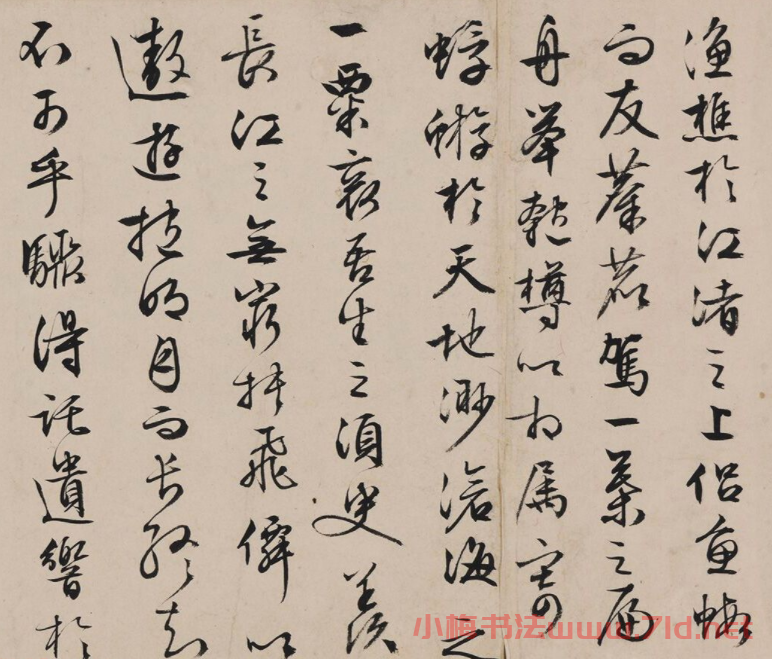 漁樵於江渚之上侣魚蝦
而友麋鹿駕一葉之扁
舟舉匏樽以相属寄
蜉蝣於天地渺滄海之
一粟哀吾生之須臾羨
長江之無窮挟飛僊以
遨遊抱明月而長終知
不可乎驟得託遺響於
小梅书法www.7ld.net